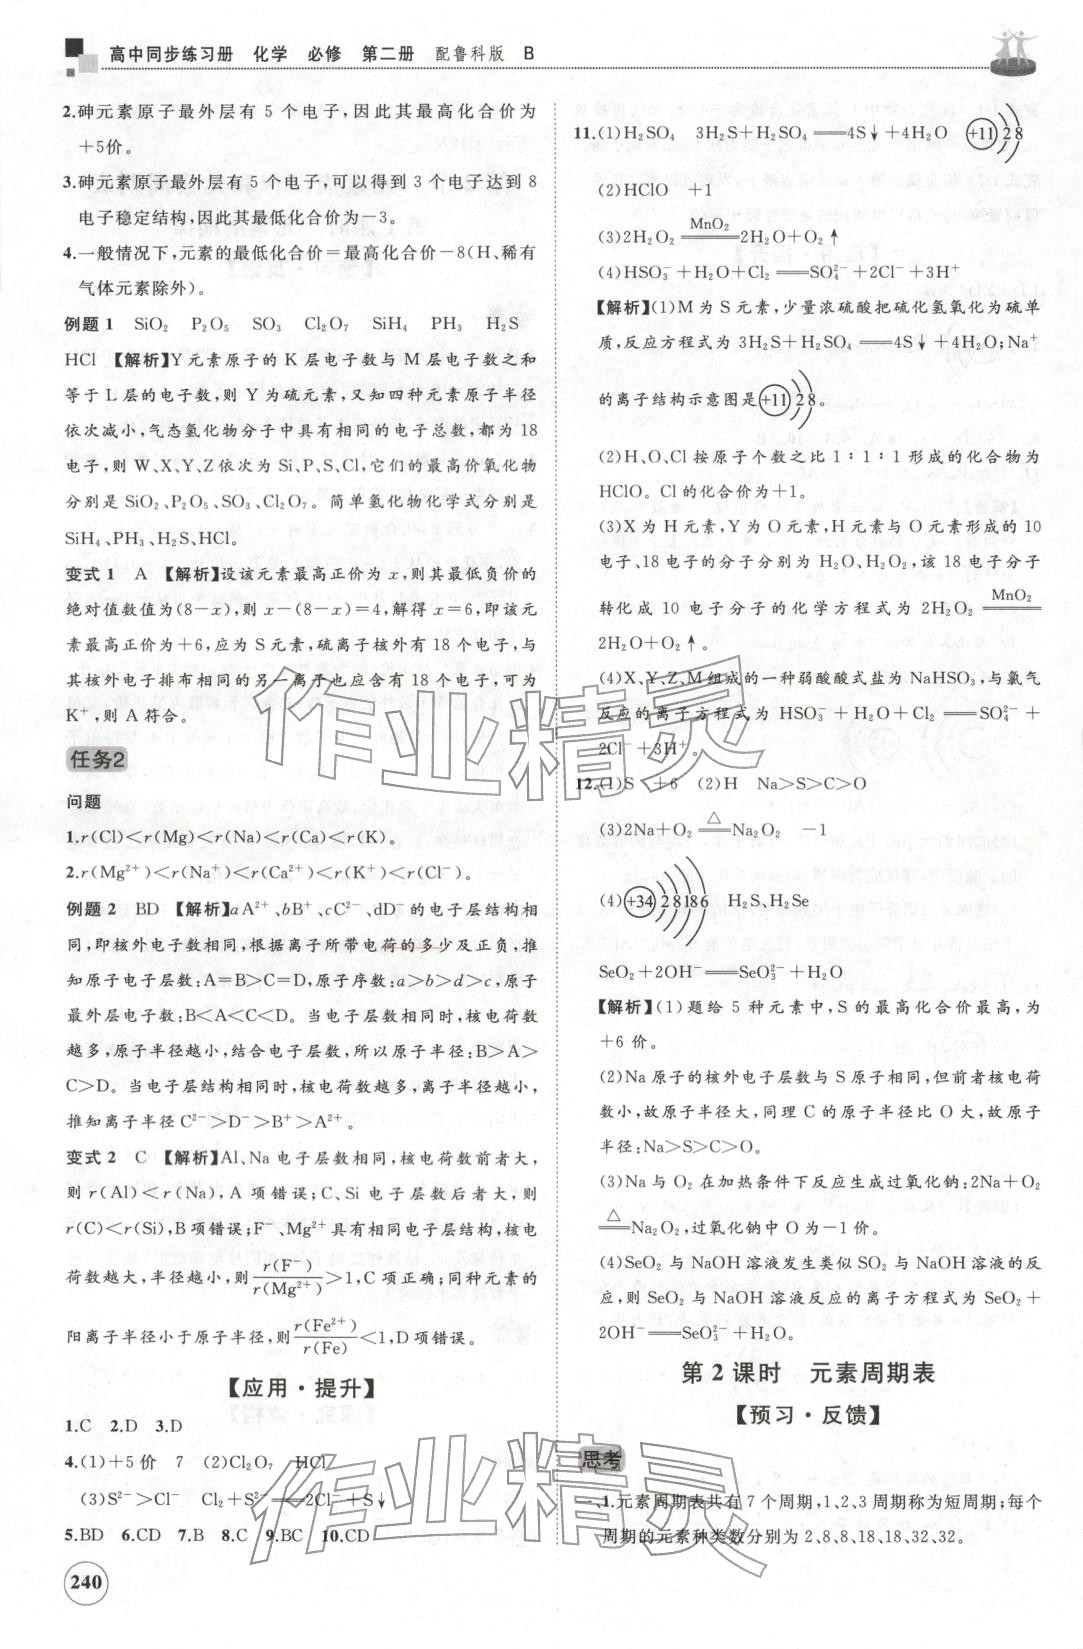 高中同步练习册 化学 必修 第二册 配鲁科版 B
2.砷元素原子最外层有5个电子,因此其最高化合价为
+5价。
3.砷元素原子最外层有5个电子,可以得到3个电子达到8
电子稳定结构,因此其最低化合价为-3。
4.一般情况下,元素的最低化合价=最高化合价-8(H、稀有
气体元素除外)。
例题1 SiO₂ P₂O₅ SO₃ Cl₂O₇ SiH₄ PH₃ H₂S
HCl 【解析】Y元素原子的K层电子数与M层电子数之和
等于L层的电子数,则Y为硫元素,又知四种元素原子半径
依次减小,气态氢化物分子中具有相同的电子总数,都为18
电子,则W、X、Y、Z依次为Si、P、S、Cl,它们的最高价氧化物
分别是SiO₂、P₂O₅、SO₃、Cl₂O₇。简单氢化物化学式分别是
SiH₄、PH₃、H₂S、HCl。
变式1 A 【解析】设该元素最高正价为x,则其最低负价的
绝对值数值为(8-x),则x-(8-x)=4,解得x=6,即该元
素最高正价为+6,应为S元素,硫离子核外有18个电子,与
其核外电子排布相同的另一离子也应含有18个电子,可为
K⁺,则A符合。
任务2
问题
1.r(Cl)<r(Mg)<r(Na)<r(Ca)<r(K)。
2.r(Mg²⁺)<r(Na⁺)<r(Ca²⁺)<r(K⁺)<r(Cl⁻)。
例题2 BD 【解析】aA²⁺、bB⁺、cC²⁻、dD⁻的电子层结构相
同,即核外电子数相同,根据离子所带电荷的多少及正负,推
知原子电子层数:A=B>C=D,原子序数:a>b>d>c,原子
最外层电子数:B<A<C<D。当电子层数相同时,核电荷数
越多,原子半径越小,结合电子层数,所以原子半径:B>A>
C>D。当电子层结构相同时,核电荷数越多,离子半径越小,
推知离子半径C²⁻>D⁻>B⁺>A²⁺。
变式2 C 【解析】Al、Na电子层数相同,核电荷数前者大,
则r(Al)<r(Na),A项错误;C、Si电子层数后者大,则
r(C)<r(Si),B项错误;F⁻、Mg²⁺具有相同电子层结构,核电
荷数越大,半径越小,则r(F⁻)/r(Mg²⁺)>1,C项正确;同种元素的
阳离子半径小于原子半径,则r(Fe²⁺)/r(Fe)<1,D项错误。
【应用·提升】
1.C 2.D 3.D
4.(1)+5价 7 (2)Cl₂O₇ HCl
(3)S²⁻>Cl⁻ Cl₂+S²⁻══2Cl⁻+S↓
5.BD 6.CD 7.B 8.C 9.BC 10.CD
240
11.(1)H₂SO₄ 3H₂S+H₂SO₄══4S↓+4H₂O +11 2 8
(2)HClO +1
(3)2H₂O₂ MnO₂══2H₂O+O₂↑
(4)HSO₃⁻+H₂O+Cl₂══SO₄²⁻+2Cl⁻+3H⁺
【解析】(1)M为S元素,少量浓硫酸把硫化氢氧化为硫单
质,反应方程式为3H₂S+H₂SO₄══4S↓+4H₂O;Na⁺
的离子结构示意图是+11 2 8。
(2)H、O、Cl按原子个数之比1∶1∶1形成的化合物为
HClO。Cl的化合价为+1。
(3)X为H元素,Y为O元素,H元素与O元素形成的10
电子、18电子的分子分别为H₂O、H₂O₂,该18电子分子
转化成10电子分子的化学方程式为2H₂O₂ MnO₂══
2H₂O+O₂↑。
(4)X、Y、Z、M组成的一种弱酸酸式盐为NaHSO₃,与氯气
反应的离子方程式为HSO₃⁻+H₂O+Cl₂══SO₄²⁻+
2Cl⁻+3H⁺。
12.(1)S +6 (2)H Na>S>C>O
(3)2Na+O₂ △══Na₂O₂ -1
(4)+34 2 8 18 6 H₂S、H₂Se
SeO₂+2OH⁻══SeO₃²⁻+H₂O
【解析】(1)题给5种元素中,S的最高化合价最高,为
+6价。
(2)Na原子的核外电子层数与S原子相同,但前者核电荷
数小,故原子半径大,同理C的原子半径比O大,故原子
半径:Na>S>C>O。
(3)Na与O₂在加热条件下反应生成过氧化钠:2Na+O₂
△══Na₂O₂,过氧化钠中O为-1价。
(4)SeO₂与NaOH溶液发生类似SO₂与NaOH溶液的反
应,则SeO₂与NaOH溶液反应的离子方程式为SeO₂+
2OH⁻══SeO₃²⁻+H₂O。
第2课时 元素周期表
【预习·反馈】
思考
一、1.元素周期表共有7个周期,1、2、3周期称为短周期;每个
周期的元素种类数分别为2、8、8、18、18、32、32。
作业精灵
作业精灵